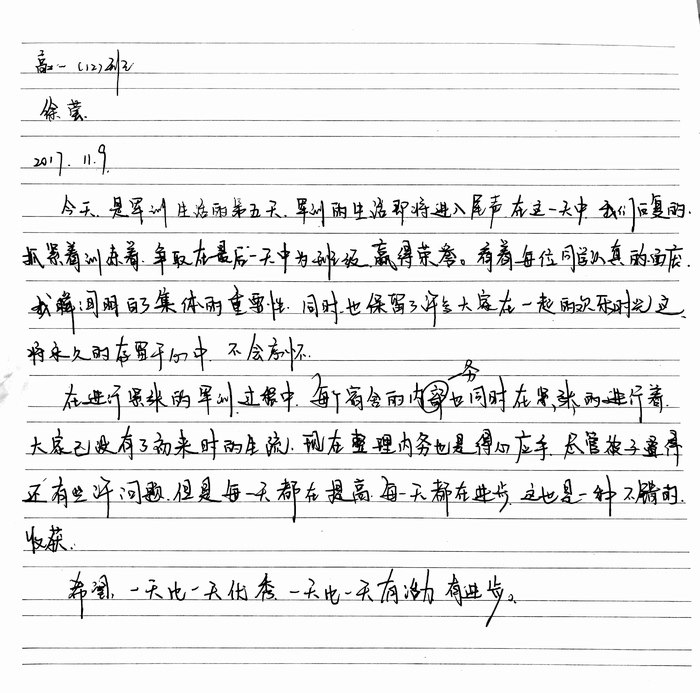 高一(12)班
徐芸
2017.11.9.
今天,是军训生活的第五天.军训的生活即将进入尾声.在这一天中 我们回复的.
抓紧着训练着.争取在最后一天中为班级赢得荣誉。看着每位同学认真的面庞.
我瞬间明白了集体的重要性.同时也保留了许多大家在一起的欢乐时光,这
将永久的存留于心中.不会忘怀.
在进行紧张的军训过程中.每个宿舍的内部务也同时在紧张的进行着.
大家已没有了初来时的生疏.现在整理内务也是得心应手.尽管被子叠得
还有些许问题.但是每一天都在提高.每一天都在进步.这也是一种不错的.
收获.
希望,一天比一天优秀.一天比一天有活力 有进步。